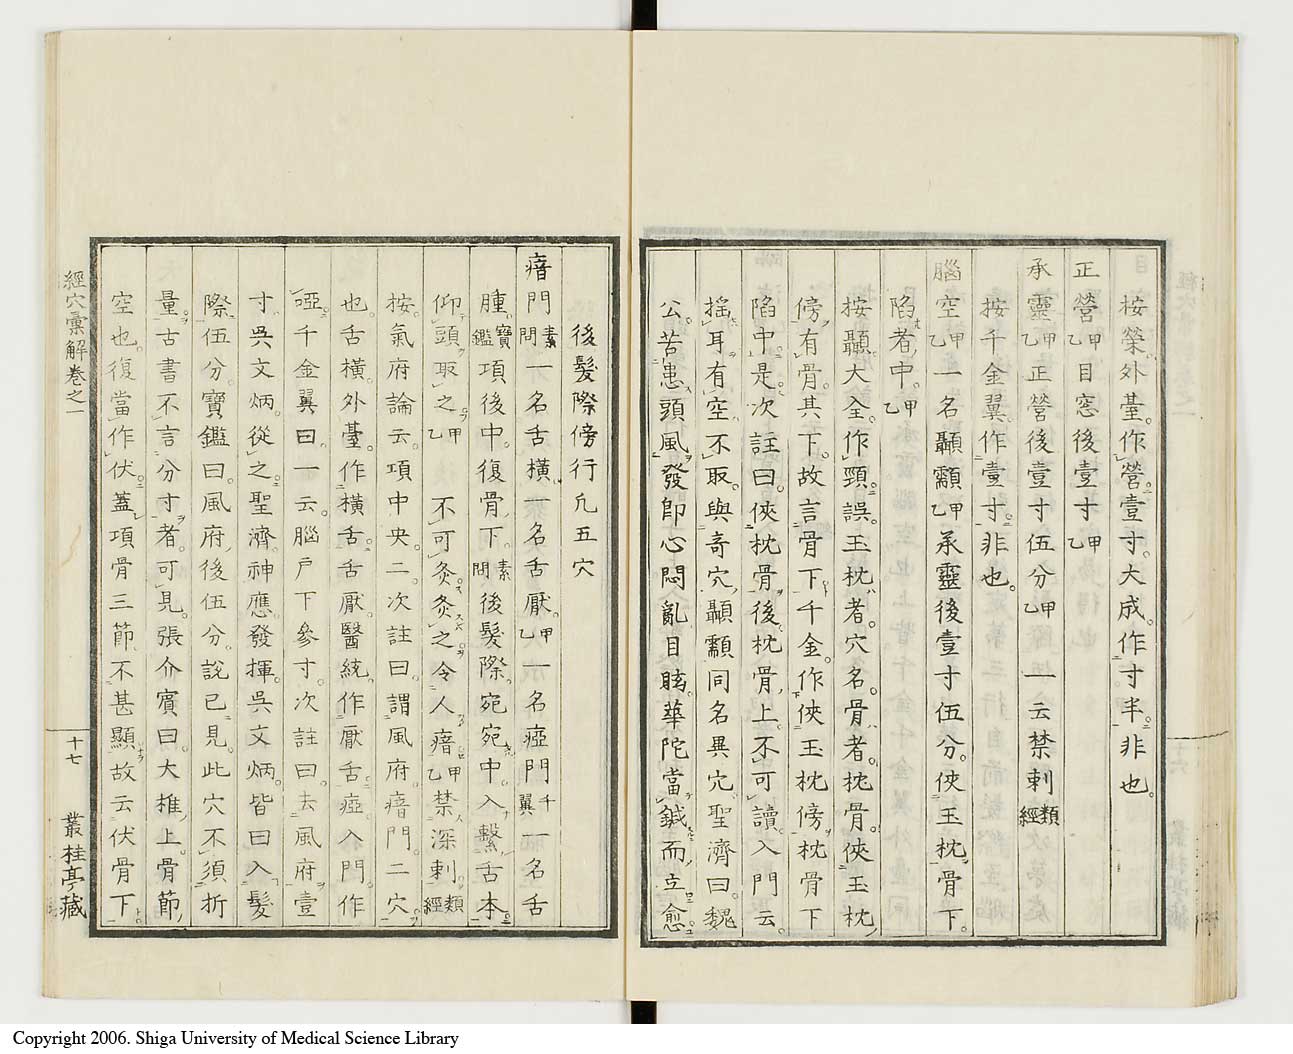 按榮。外臺。作營壹寸。大成。作寸半。非也。
正營甲乙目窓後壹寸甲乙
承靈甲乙正營後壹寸伍分甲乙一云禁刺類經
按千金翼。作壹寸。非也。
腦空甲乙一名顳顬甲乙承靈後壹寸伍分。俠玉枕骨下。
陷者中。甲乙
按顳。大全。作顋。誤。玉枕者。穴名。骨者。枕骨。俠玉枕
傍有骨。其下。故言骨下。千金。作俠玉枕傍。枕骨下
陷中。是。次註曰。俠枕骨後。枕骨上。不可讀。入門云。
搖耳有空。不取。與奇穴。顳顬同名異穴。聖濟曰。魏
公苦患頭風。發卽心悶亂目眩。華陀當鍼而立愈
後髮際傍行凢五穴
瘖門素問一名舌橫。一名舌厭。甲乙一名瘂門千翼一名舌
腫。寶鑑項後中。復骨下。素問後髮際。宛宛中。入繫舌本。
仰頭取之甲乙不可灸灸之令人瘖甲乙禁深刺類經
按。氣府論云。項中央。二。次註曰。謂風府。瘖門。二穴。
也。舌橫。外臺。作橫舌。舌厭。醫統。作厭舌。瘂。入門。作
啞。千金翼曰。一云。腦戶下參寸。次註曰。去風府壹
寸。吳文炳。從之。聖濟。神應。發揮。吳文炳。皆曰。入髮
際伍分。寶鑑曰。風府後伍分。說已見。此穴不須折
量。古書不言分寸者。可見。張介賓曰。大椎上骨節。
空也。復當作伏。蓋項骨三節。不甚顯。故云伏骨下
經穴彙解卷之一
十七
叢桂亭藏
Copyright 2006. Shiga University of Medical Science Library